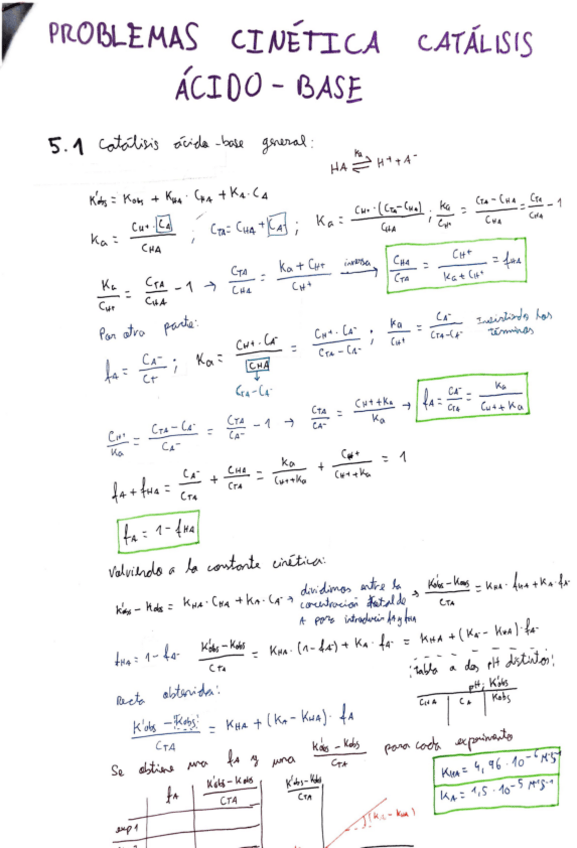 PROBLEMAS CINÉTICA CATÁLISIS
ÁCIDO-BASE
5.1 Catálisis ácido-base general:
HA ⇌ H⁺ + A⁻
K'obs = Kobs + K_HA · C_HA + K_A · C_A
Ka = C_H⁺ · C_A / C_HA ; C_TA = C_HA + C_A⁻ ; Ka = C_H⁺ · (C_TA - C_HA) / C_HA ; Ka / C_H⁺ = (C_TA - C_HA) / C_HA = C_TA / C_HA - 1
Ka / C_H⁺ = C_TA / C_HA - 1 → C_TA / C_HA = (Ka + C_H⁺) / C_H⁺ inversa → C_HA / C_TA = C_H⁺ / (Ka + C_H⁺) = f_HA
Por otra parte:
f_A⁻ = C_A⁻ / C_T ; Ka = C_H⁺ · C_A⁻ / C_HA = C_H⁺ · C_A⁻ / (C_TA - C_A⁻) ; Ka / C_H⁺ = C_A⁻ / (C_TA - C_A⁻) Invirtiendo los términos
C_TA - C_A⁻
C_H⁺ / Ka = (C_TA - C_A⁻) / C_A⁻ = C_TA / C_A⁻ - 1 → C_TA / C_A⁻ = (C_H⁺ + Ka) / Ka → f_A = C_A⁻ / C_TA = Ka / (C_H⁺ + Ka)
f_A + f_HA = C_A⁻ / C_TA + C_HA / C_TA = Ka / (C_H⁺ + Ka) + C_H⁺ / (C_H⁺ + Ka) = 1
f_A = 1 - f_HA
Volviendo a la constante cinética:
K'obs - Kobs = K_HA · C_HA + K_A · C_A⁻ → dividimos entre la concentración total de A para introducir f_A y f_HA → (K'obs - Kobs) / C_TA = K_HA · f_HA + K_A · f_A⁻
f_HA = 1 - f_A⁻ (K'obs - Kobs) / C_TA = K_HA · (1 - f_A⁻) + K_A · f_A⁻ = K_HA + (K_A⁻ - K_HA) · f_A⁻
tabla a dos pH distintos:
pH; K'obs
C_HA | C_A | Kobs
Recta obtenida:
(K'obs - Kobs) / C_TA = K_HA + (K_A - K_HA) · f_A
Se obtiene una f_A y una (K'obs - Kobs) / C_TA para cada experimento
K_HA = 4,96 · 10⁻⁶ M⁻¹s⁻¹
K_A = 1,5 · 10⁻⁵ M⁻¹s⁻¹
f_A | (K'obs - Kobs) / C_TA
exp 1
(K'obs - Kobs) / C_TA
(K_A - K_HA)